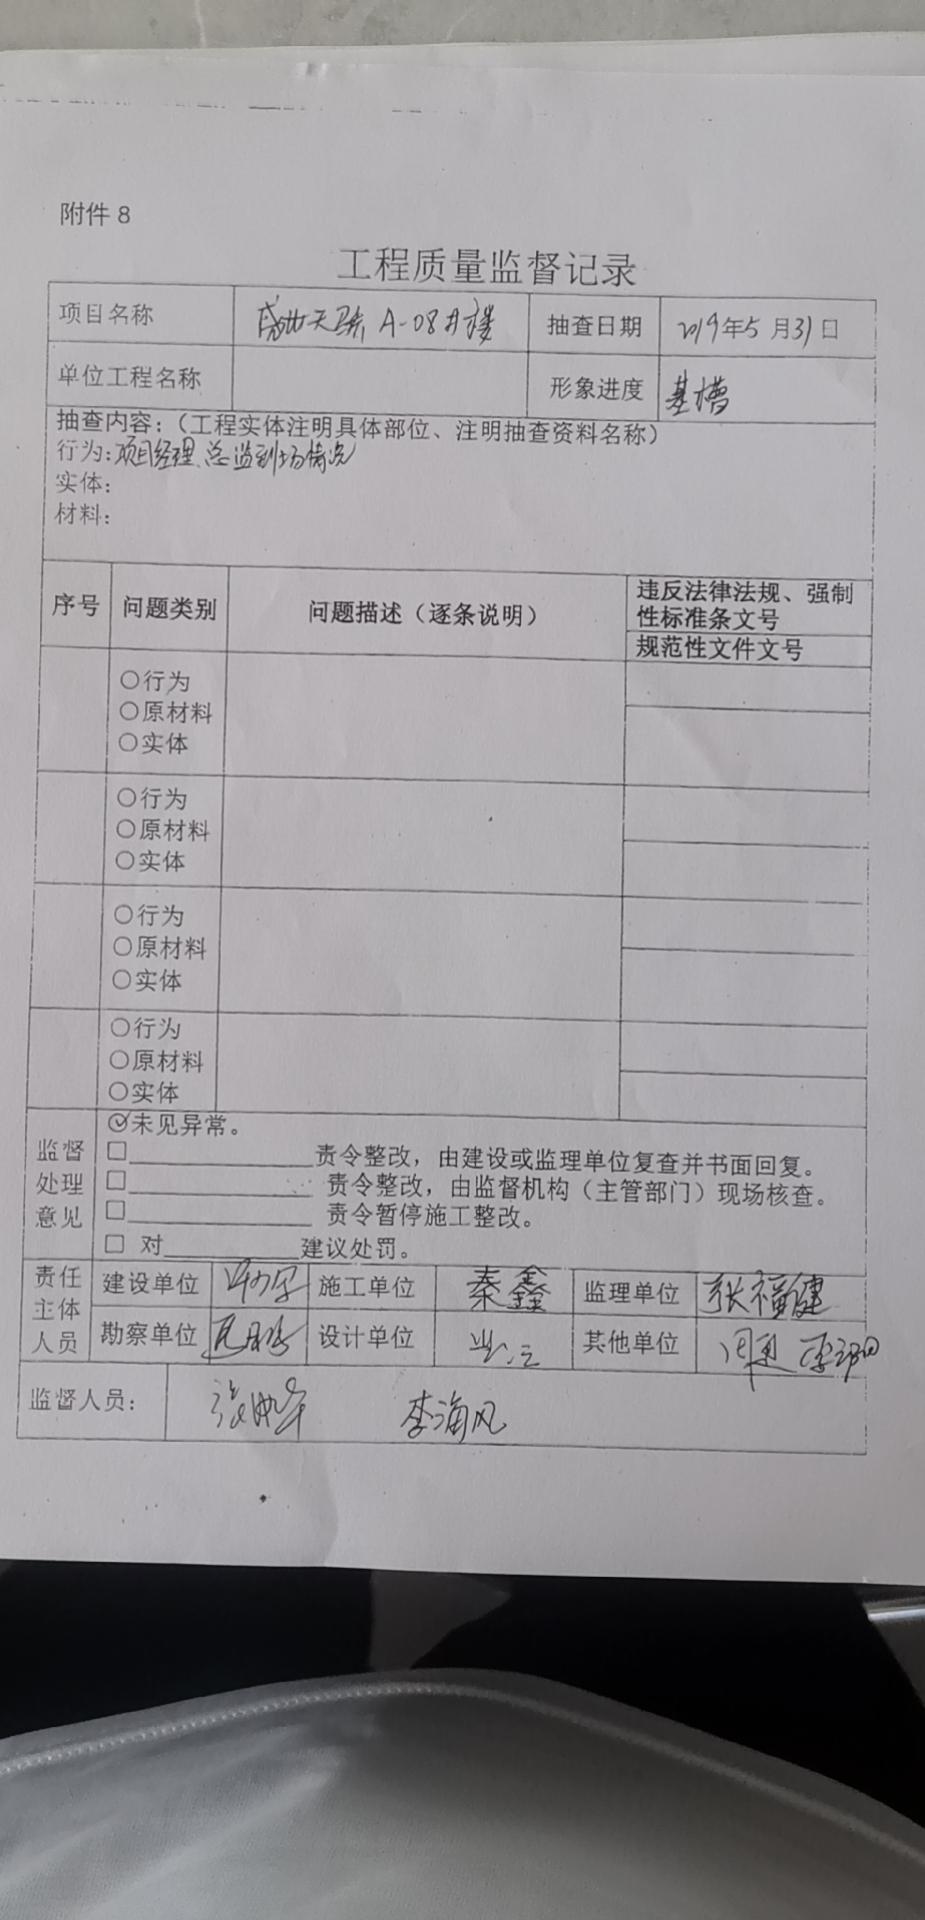 附件 8
工程质量监督记录
项目名称 A-08#楼 抽查日期 2019年5月31日
单位工程名称 形象进度 基槽
抽查内容：（工程实体注明具体部位、注明抽查资料名称）
行为：项目经理、总监到场情况
实体：
材料：
序号 问题类别 问题描述（逐条说明） 违反法律法规、强制性标准条文号
规范性文件文号
○行为
○原材料
○实体
○行为
○原材料
○实体
○行为
○原材料
○实体
○行为
○原材料
○实体
监督处理意见
未见异常。
□____________责令整改，由建设或监理单位复查并书面回复。
□____________责令整改，由监督机构（主管部门）现场核查。
□____________责令暂停施工整改。
□ 对_________建议处罚。
责任主体人员
建设单位 施工单位 秦鑫 监理单位 张福健
勘察单位 设计单位 其他单位
监督人员： 李海风